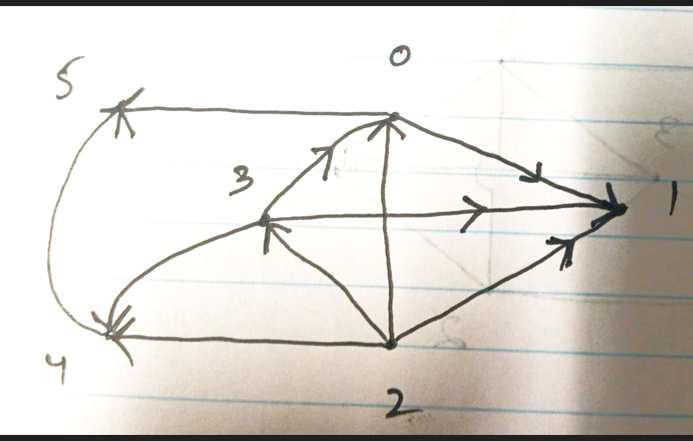 0
5
3
1
4
2